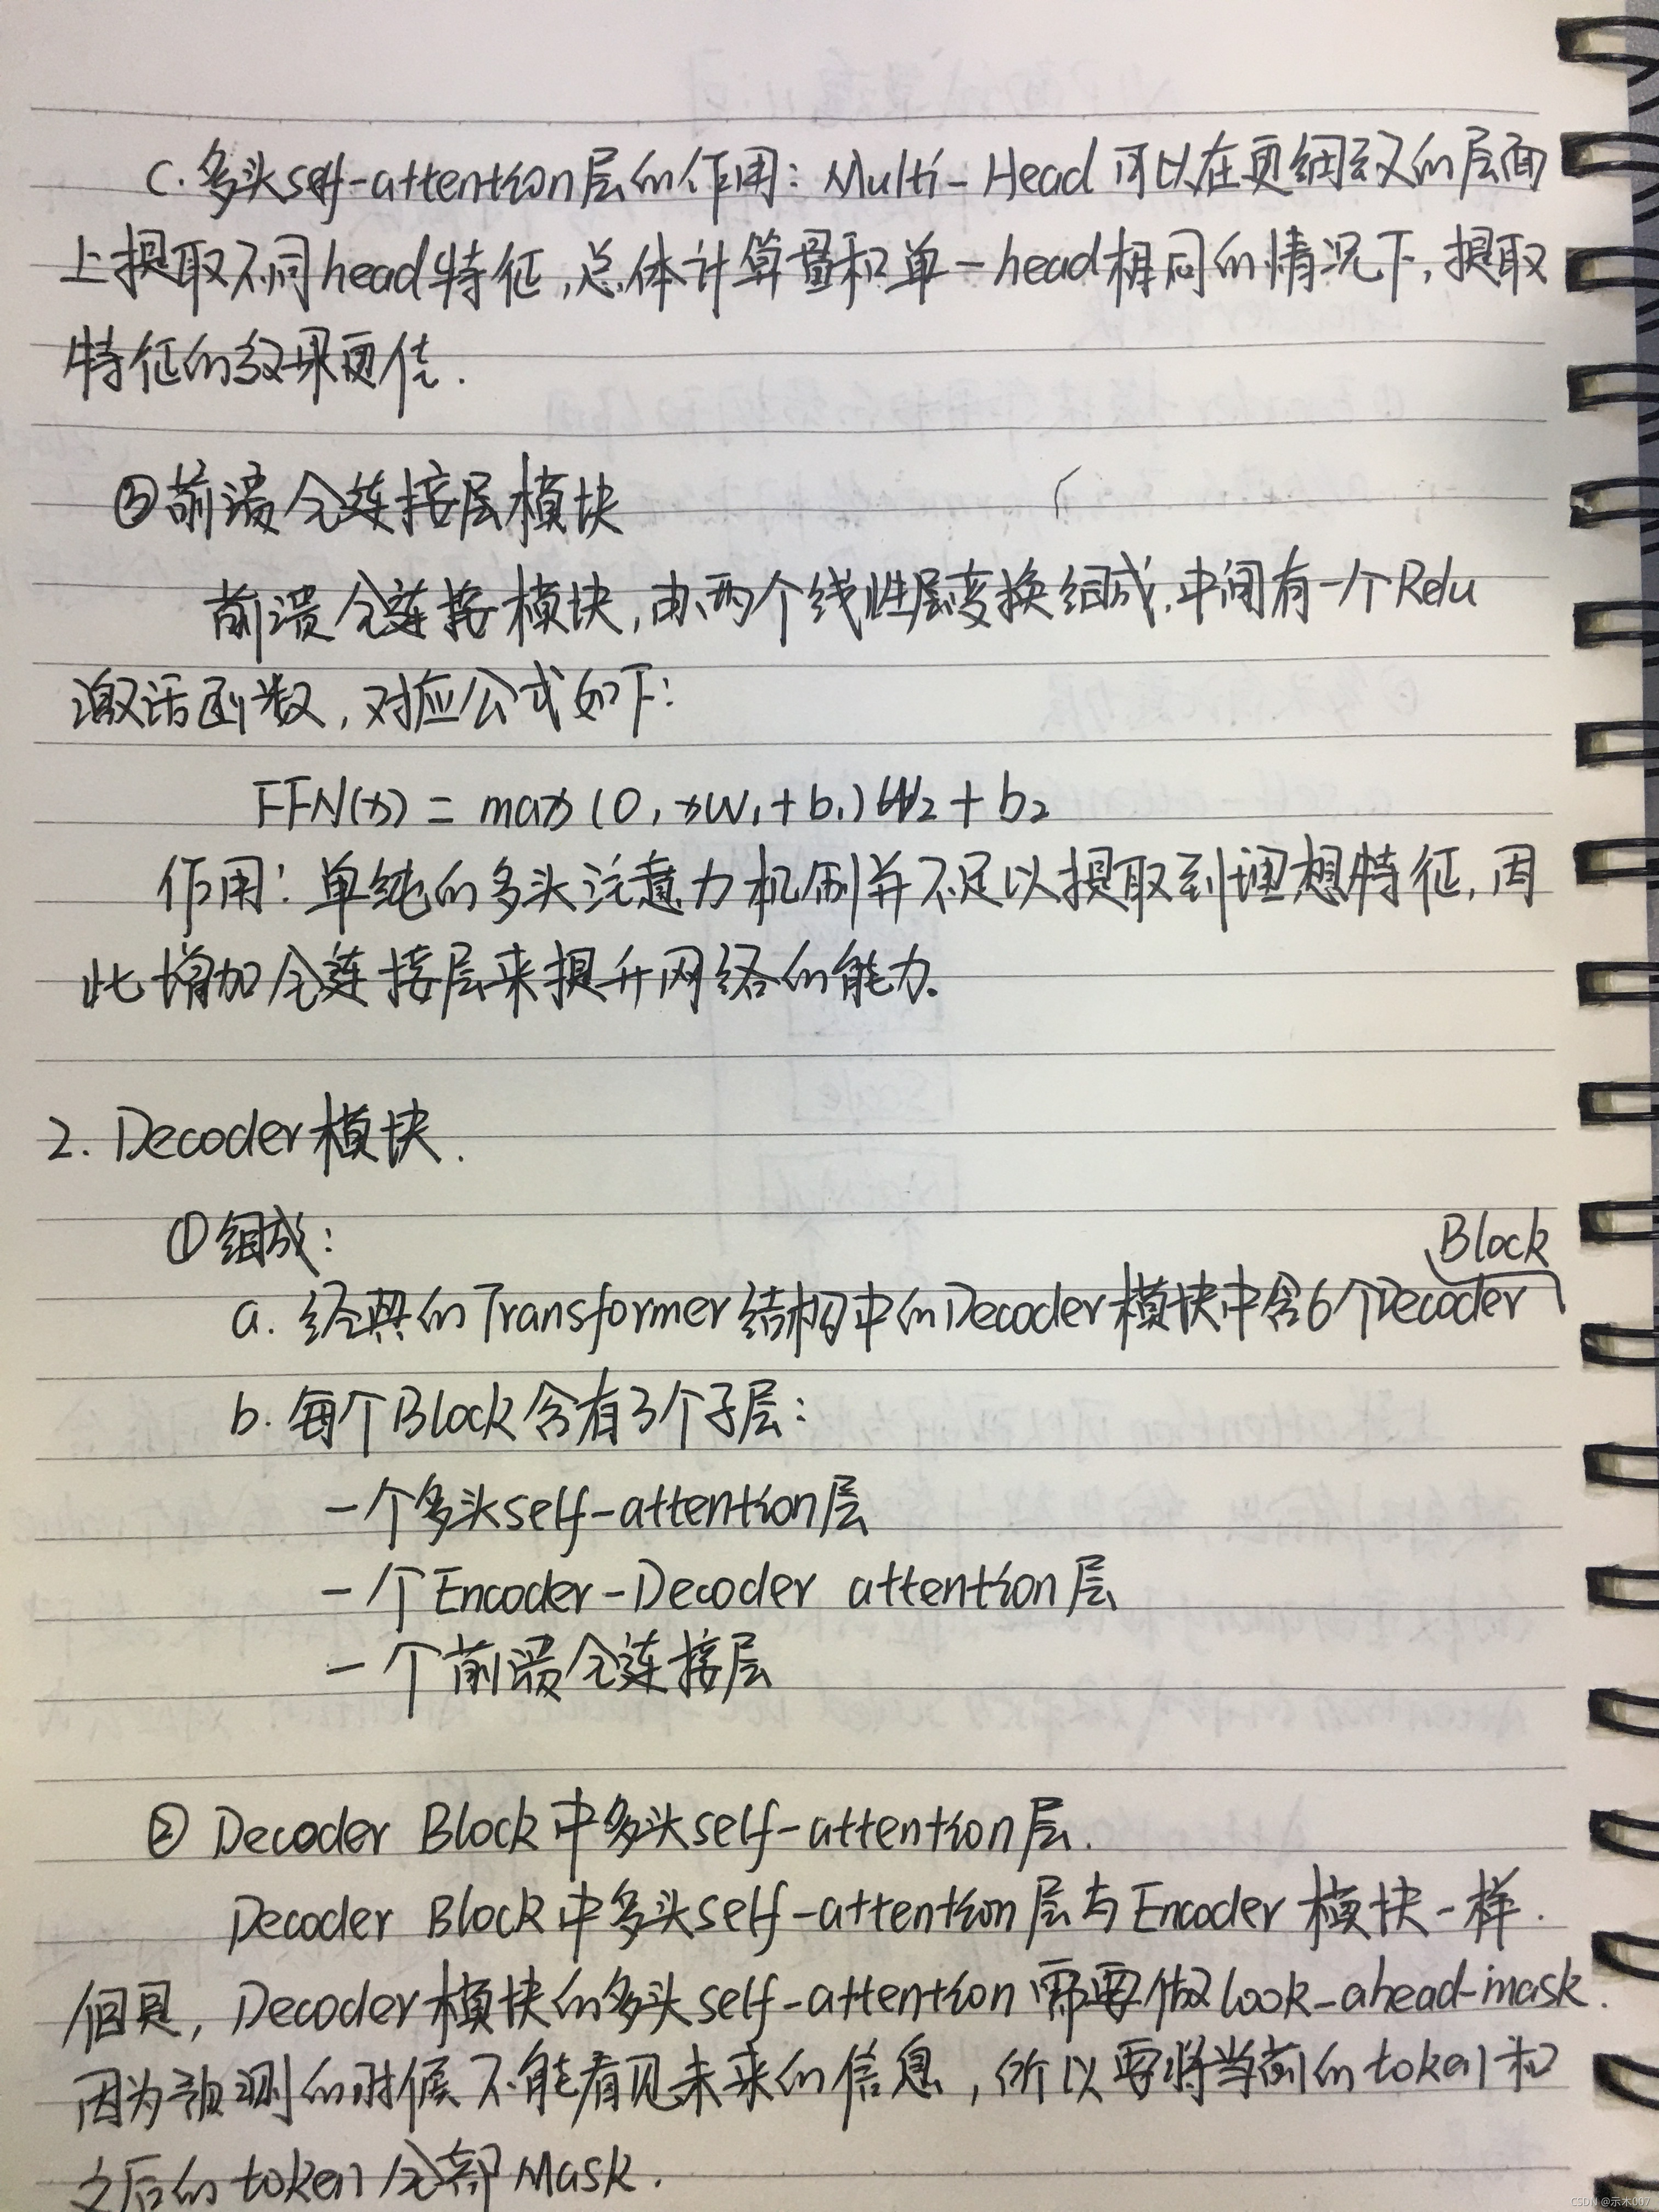 c. 多头self-attention层的作用: Multi-Head 可以在更细致的层面
上提取不同head特征,总体计算量和单一head相同的情况下,提取
特征的效果更佳.
③前馈全连接层模块
前馈全连接模块,由两个线性层变换组成,中间有一个Relu
激活函数,对应公式如下:
FFN(x) = max(0, xW₁+b₁)W₂+b₂
作用: 单纯的多头注意力机制并不足以提取到理想特征,因
此增加全连接层来提升网络的能力。
2. Decoder模块.
①组成:
Block
a. 经典的Transformer结构中的Decoder模块中含6个Decoder
b. 每个Block含有3个子层:
一个多头self-attention层
一个Encoder-Decoder attention层
一个前馈全连接层
② Decoder Block中多头self-attention层.
Decoder Block中多头self-attention层与Encoder模块一样.
但是, Decoder模块的多头self-attention需要做look-ahead-mask.
因为预测的时候不能看见未来的信息,所以要将当前的token和
之后的token全部Mask.
CSDN @示木007